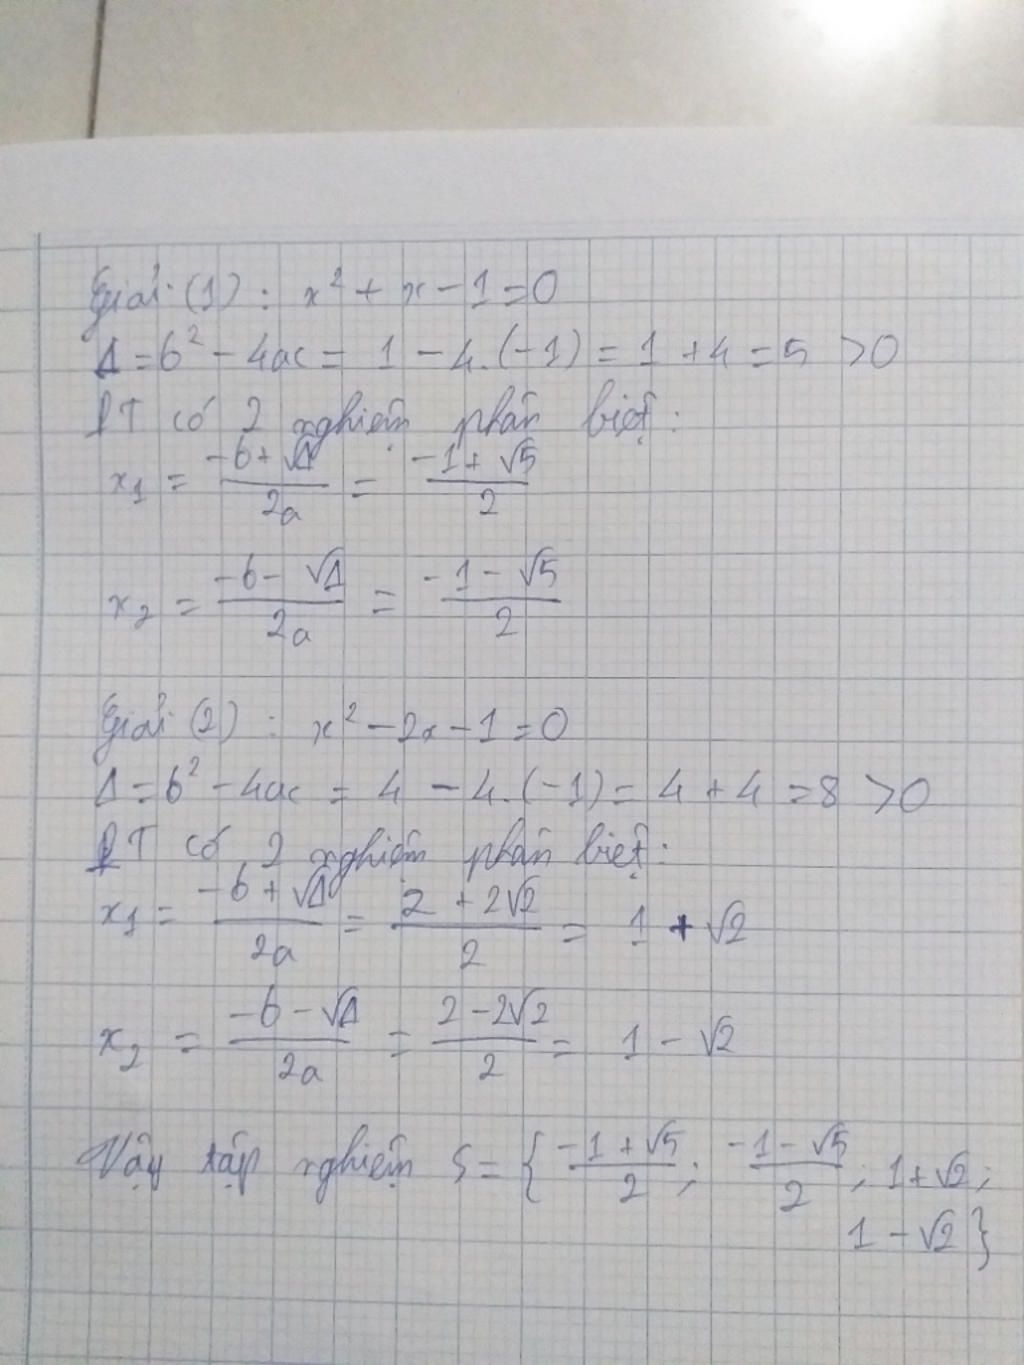 Giải (1) : x² + x - 1 = 0
Δ = b² - 4ac = 1 - 4.(-1) = 1 + 4 = 5 > 0
PT có 2 nghiệm phân biệt :
x₁ = (-b + √Δ)/2a = (-1 + √5)/2
x₂ = (-b - √Δ)/2a = (-1 - √5)/2
Giải (2) : x² - 2x - 1 = 0
Δ = b² - 4ac = 4 - 4.(-1) = 4 + 4 = 8 > 0
PT có 2 nghiệm phân biệt :
x₁ = (-b + √Δ)/2a = (2 + 2√2)/2 = 1 + √2
x₂ = (-b - √Δ)/2a = (2 - 2√2)/2 = 1 - √2
Vậy tập nghiệm S = { (-1 + √5)/2 ; (-1 - √5)/2 ; 1 + √2 ;
1 - √2 }